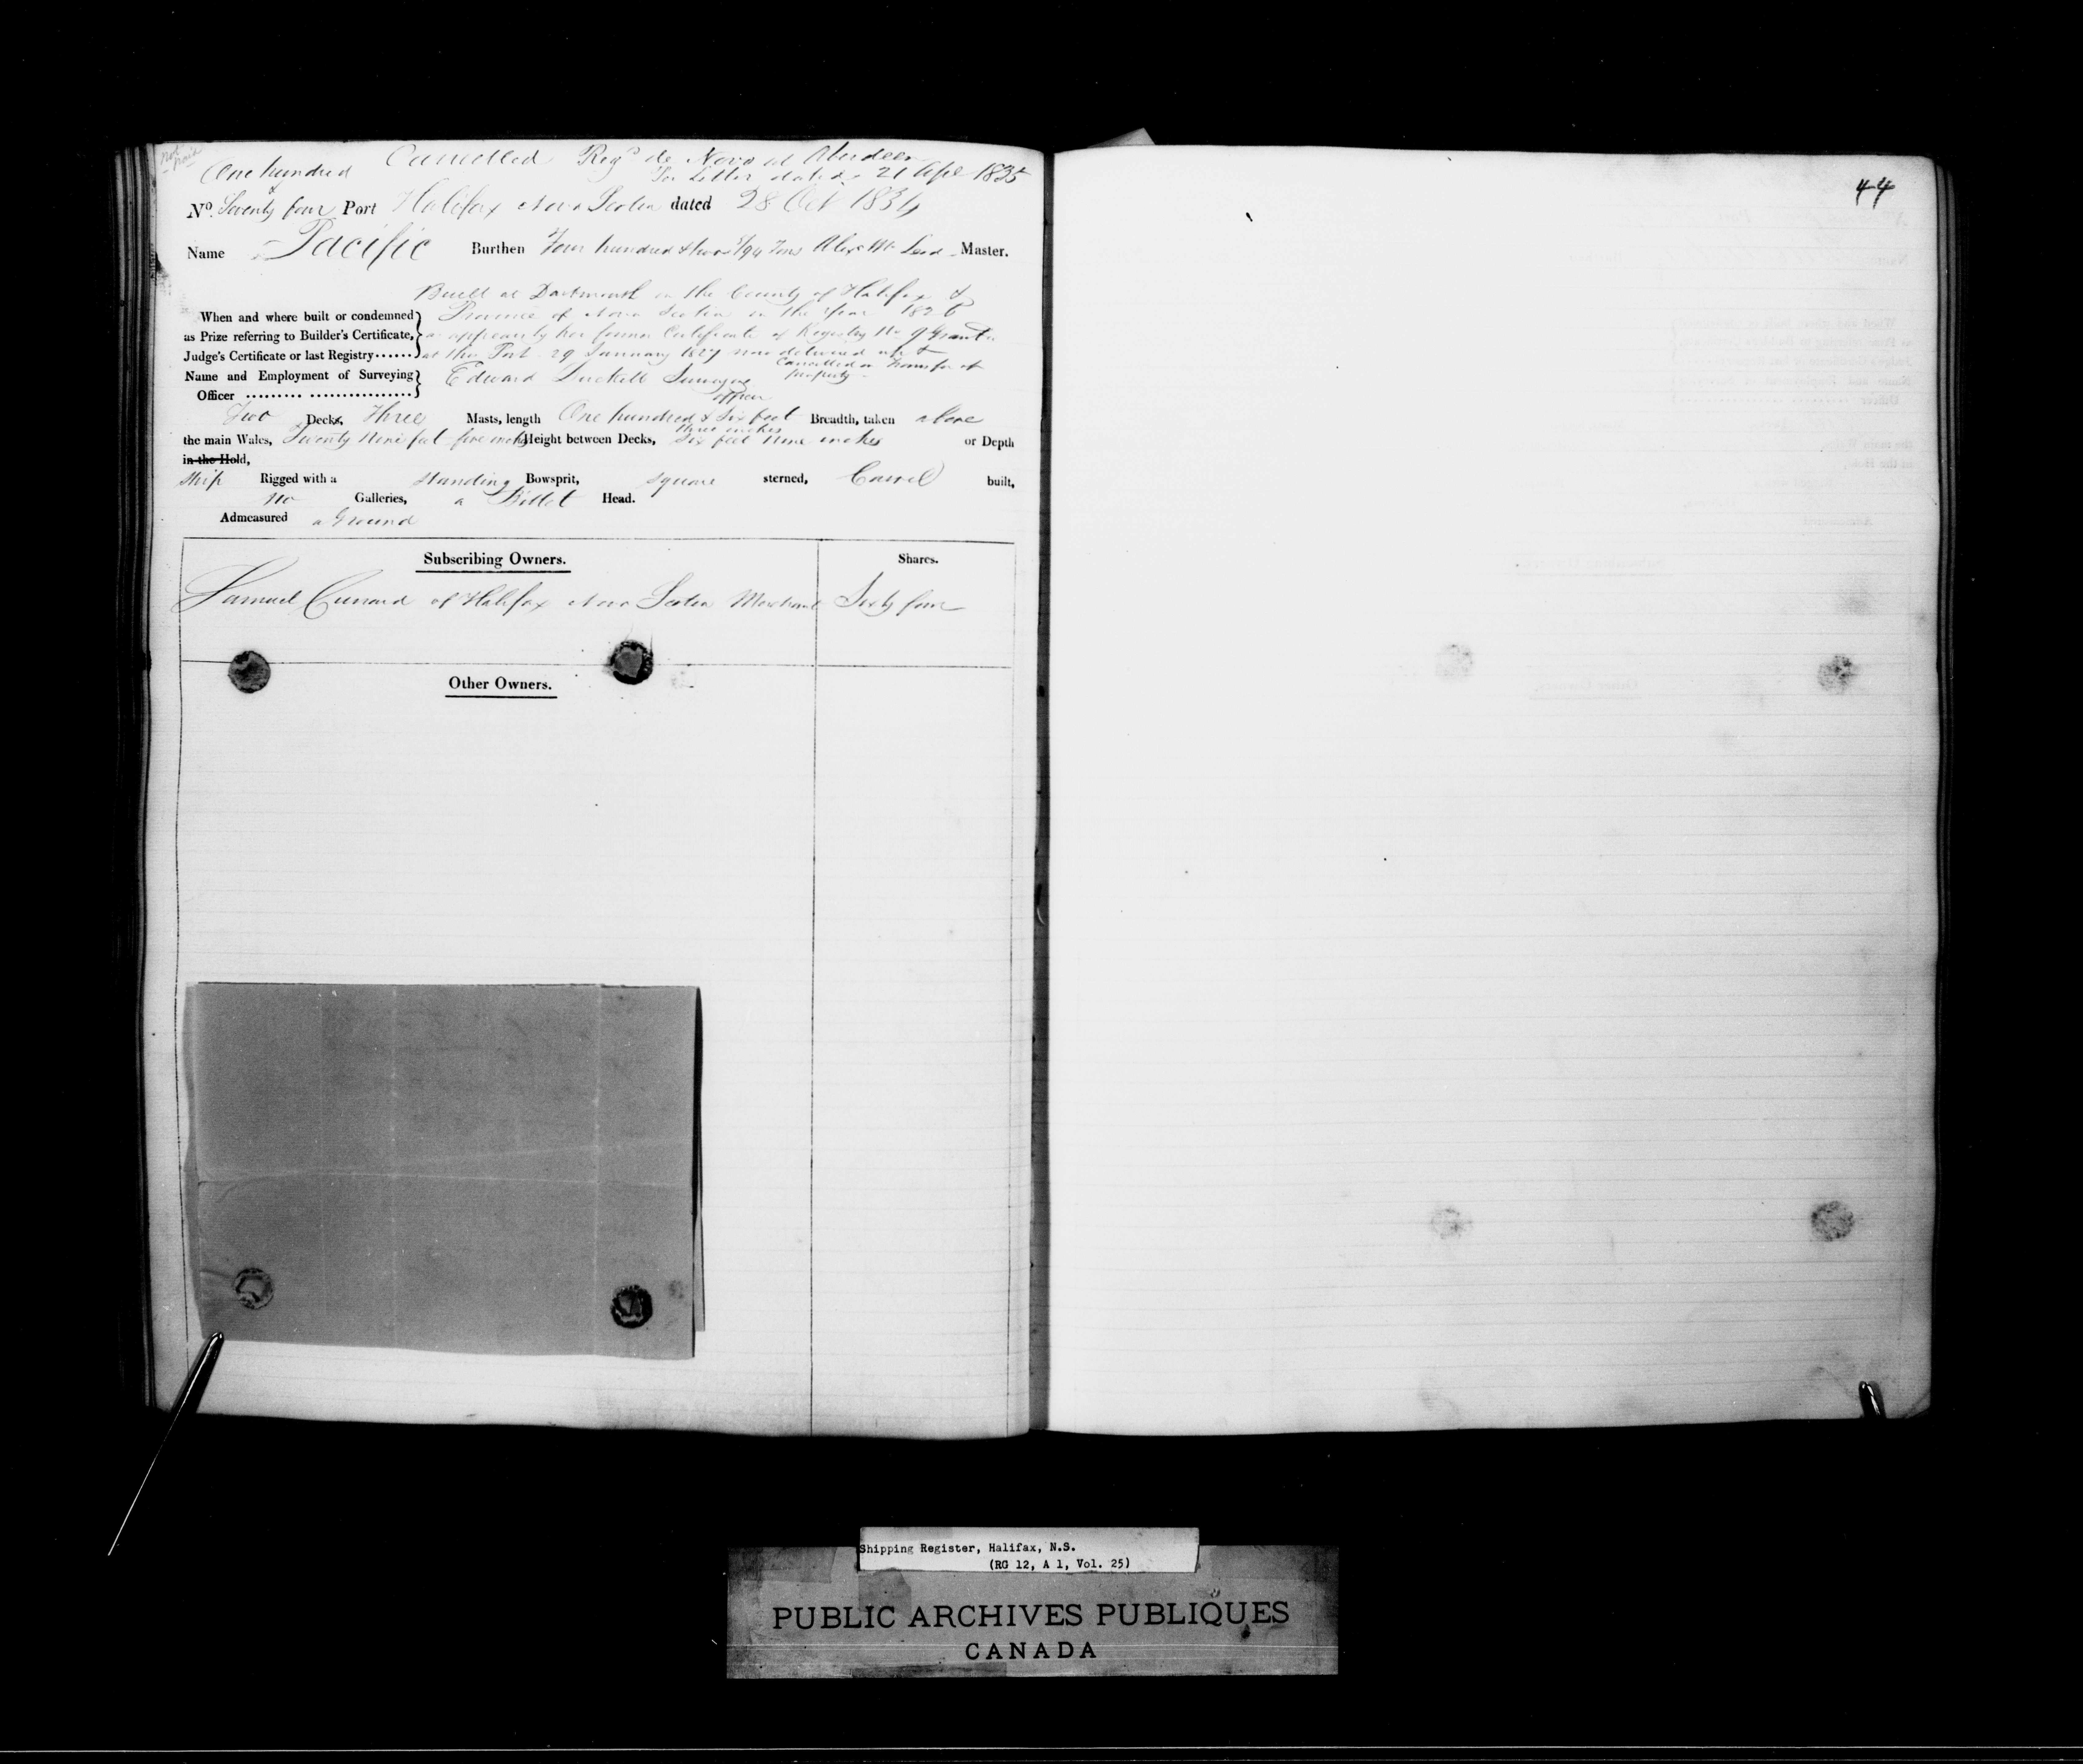 not
paid
Cancelled Regd de Novo at Aberdeen
One hundred Per Letter dated 21 Apl 1835
&
No. Seventy four Port Halifax Nova Scotia dated 28 Oct 1834
Name Pacific Burthen Four hundred & two /94 Tons Alexr Mc Leod Master.
Built at Dartmouth in the County of Halifax &
When and where built or condemned Province of Nova Scotia in the Year 1826
as Prize referring to Builder's Certificate, as appears by her former Certificate of Registry No 9 Granted
Judge's Certificate or last Registry...... at this Port 29 January 1827 now delivered up &
Cancelled on transfer of
property
Name and Employment of Surveying Edward Surveying
Officer ......... ............... officer
Two Decks, Three Masts, length One hundred & Six feet Breadth, taken above
three inches
the main Wales, Twenty Nine feet five inches Height between Decks, Six feet Nine inches or Depth
in the Hold,
Ship Rigged with a standing Bowsprit, square sterned, Carvel built,
No Galleries, a Billet Head.
Admeasured a Ground
Subscribing Owners. Shares.
Samuel Cunard of Halifax Nova Scotia Merchant Sixty four
Other Owners.
44
Shipping Register, Halifax, N.S.
(RG 12, A 1, Vol. 25)
PUBLIC ARCHIVES PUBLIQUES
CANADA